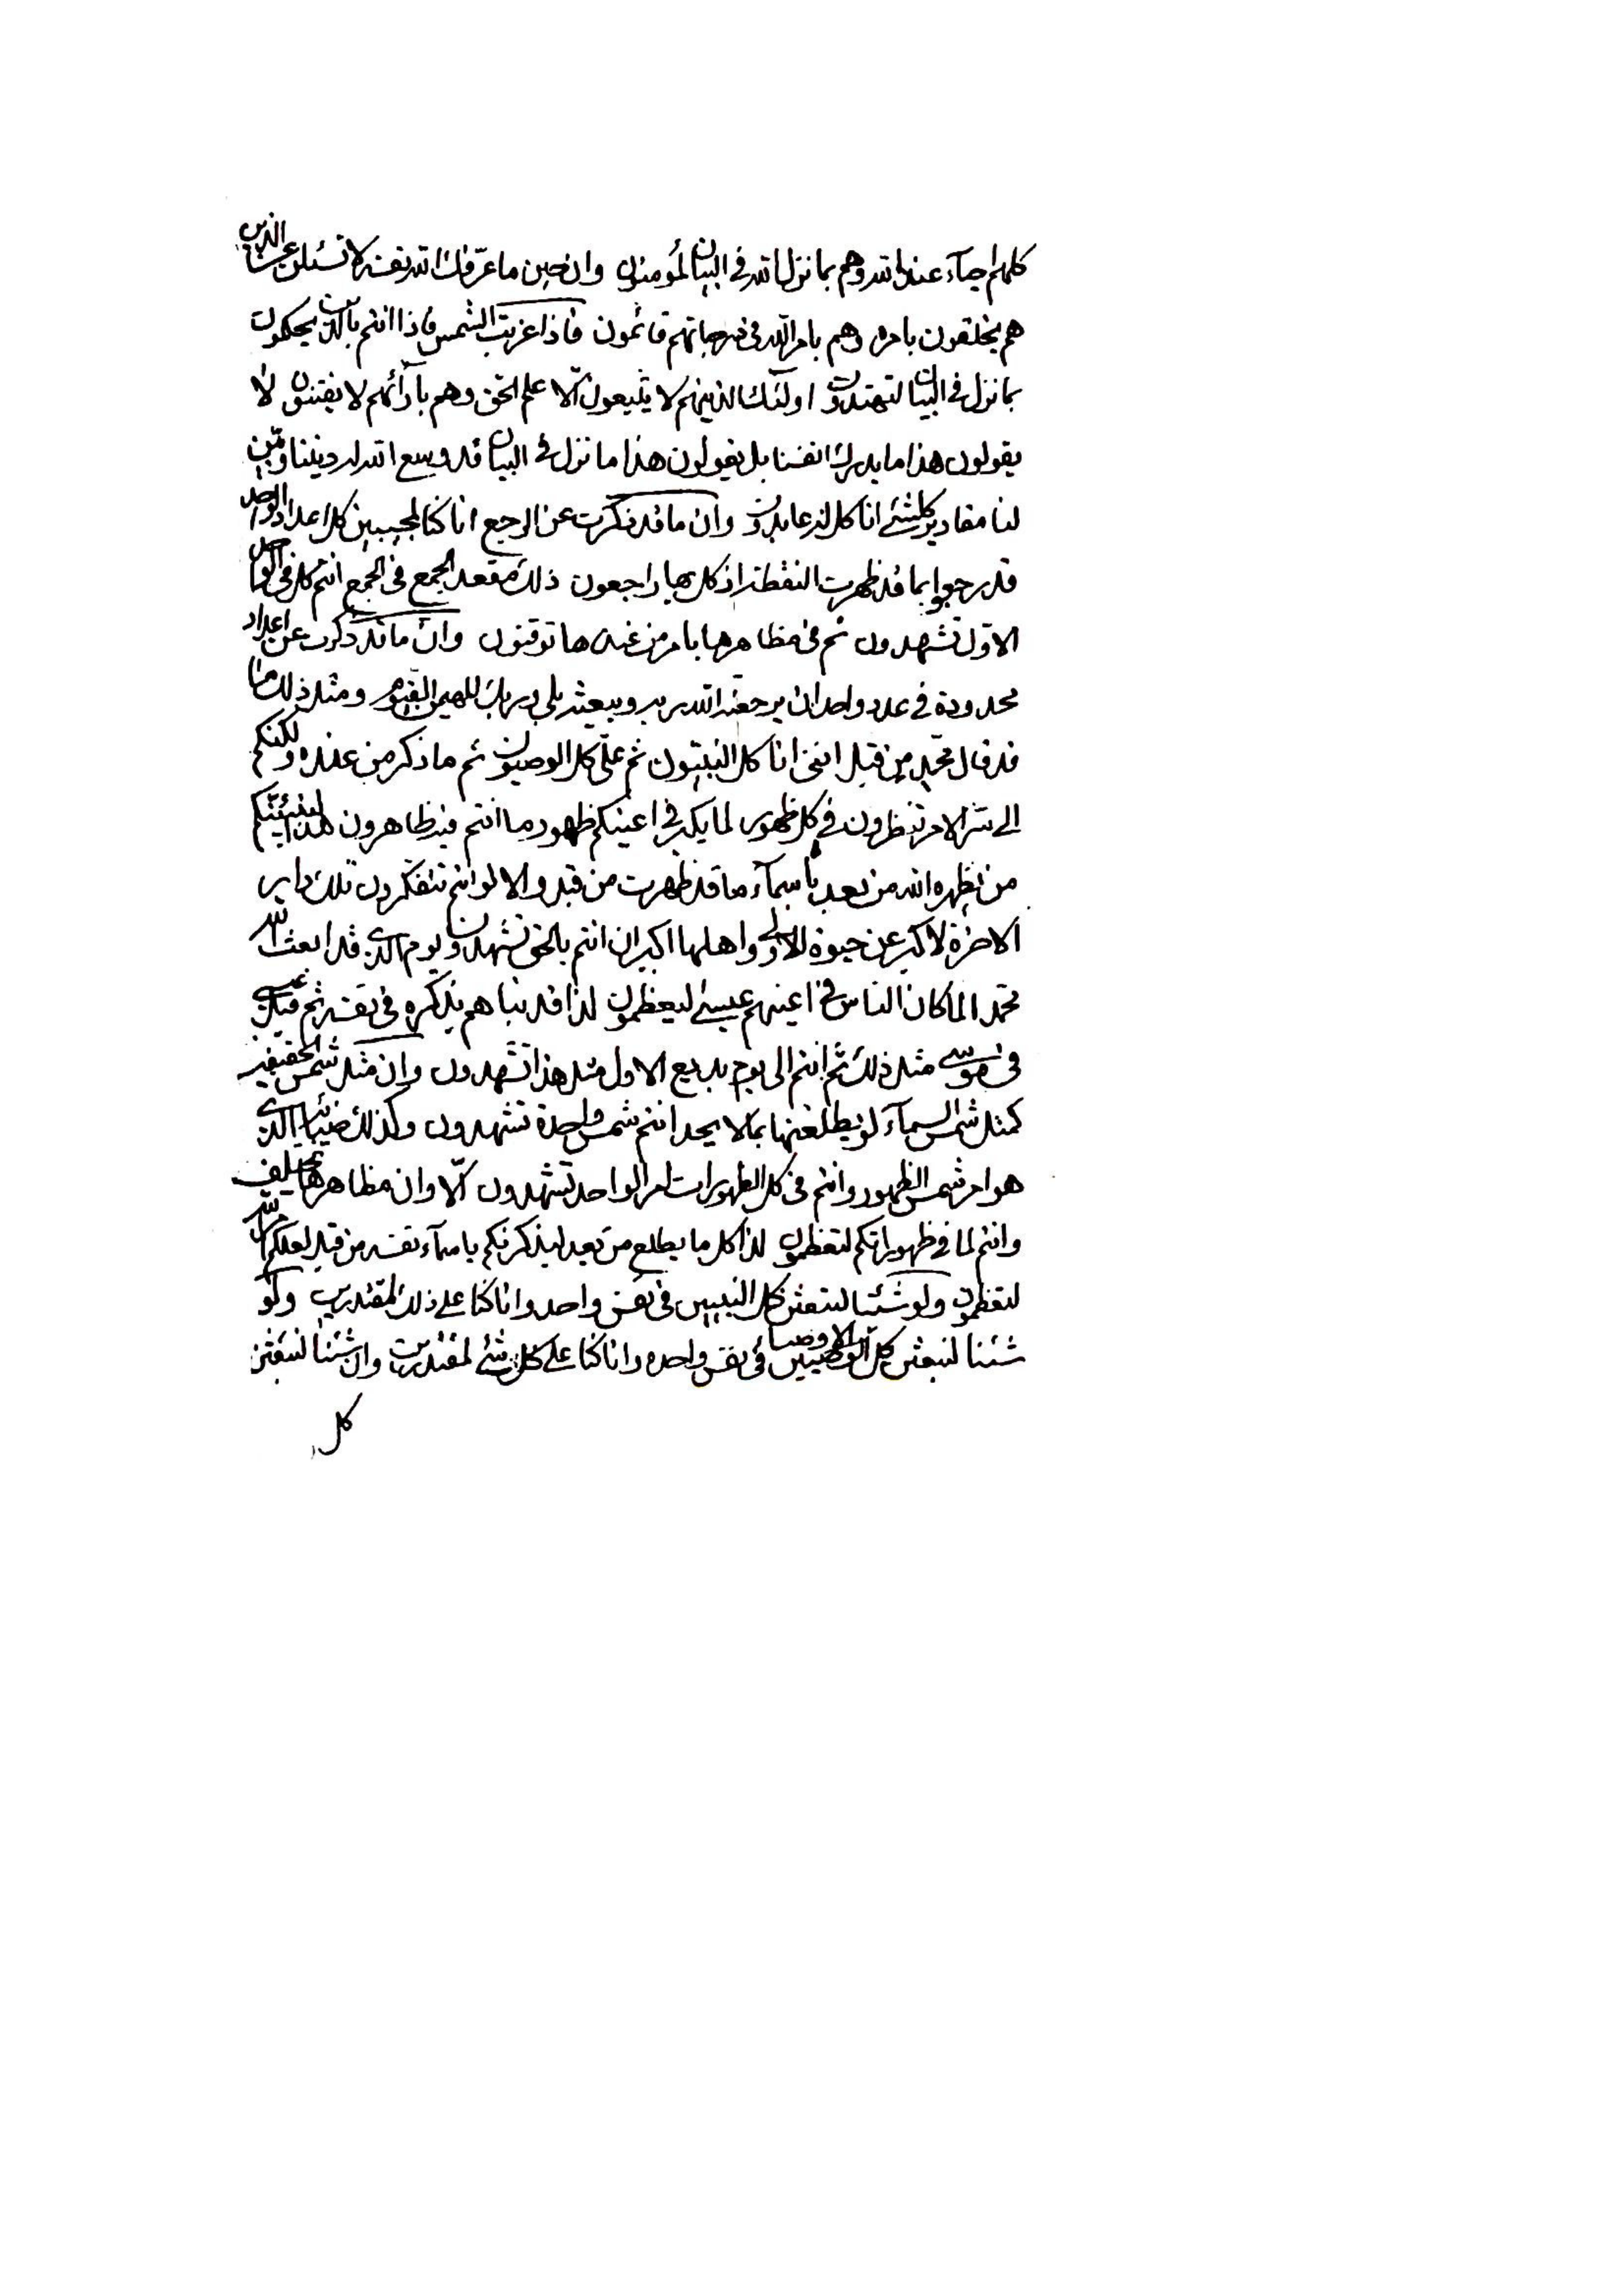 كلهم احيآء عند الله وهم بما نزل الله في البيان لمؤمنون وان حين ما عرّفك الله نفسه لا تسئلن عن الذين
هم يخلقون بامره وهم بامر الله في درجاتهم قائمون فاذا غربت الشمس فاذا انتم بالذين يحكمون
بما نزل في البيان لتهتدون اولئك الذينهم لا يتّبعون الّا علم الحق وهم بآرائهم لا يفتنون لا
يقولون هذا ما يدرك انفسنا بل يقولون هذا ما نزل في البيان قد وسع الله ديننا وبيّن
لنا مقادير كلشئ انا كل له عابدون وان ما قد ذكرت عن الرجع انا كنا لمجيبين كل اعداد الواحد
قد رجعوا بما قد ظهرت النقطة اذ كل بها راجعون ذلك مقعد الجمع في الجمع انتم كل في الواحد
الاوّل تشهدون ثم في مظاهرها بامر من عندها توقنون وان ما قد ذكرت عن اعداد
محدودة في عدد واحد ان يرجعنه الله ربه ويبعثه بلى وربك المهيمن القيوم ومثل ذلك ما
قد قال محمد من قبل انني انا كل النبيّون ثم علّي كل الوصيون ثم ما ذكر من عنده ولكنكم
الى سر الامر تنظرون في كل ظهور لما يكبر في اعينكم ظهور ما انتم فيه ظاهرون هذا لينبئنّكم
من يظهره الله من بعد باسمآء ما قد ظهرت من قبل والا لو انتم تتفكرون تلك دار
الاخرة لاكبر عن حيوة الاولى واهلها اكبر ان انتم بالحق تشهدون ويوم الذي قد ابعث الله
محمدا لما كان الناس في اعينهم عيسى ليعظمون لذا قد نباهم بذكره في نفسه ثم قبل عيسى
في موسى مثل ذلك ثم انتم الى يوم بديع الاول مثل هذا تشهدون وان مثل شمس الحقيقة
كمثل شمس السمآء لو يطلعنها بما لا يحد انتم شمس واحدة تشهدون وكذلك ضيائها الذي
هو امر شمس الظهور وانتم في كل الظهورات امر الواحد تشهدون كلّا وان مظاهرها تختلف
وانتم لما في ظهوراتكم لتعظمون لذا كل ما يطلع من بعد ليذكرنكم باسمآء نفسه من قبل لعلكم امر الله
لتعظمون ولو شئنا لنبعثن كل النبيين في نفس واحد وانا كنا على ذلك لمقتدرين ولو
شئنا لنبعثن كل الوصيين الاوصيا في نفس واحده وانا كنا على كل شئ لمقتدرين وان شئنا لنبعثن
كل